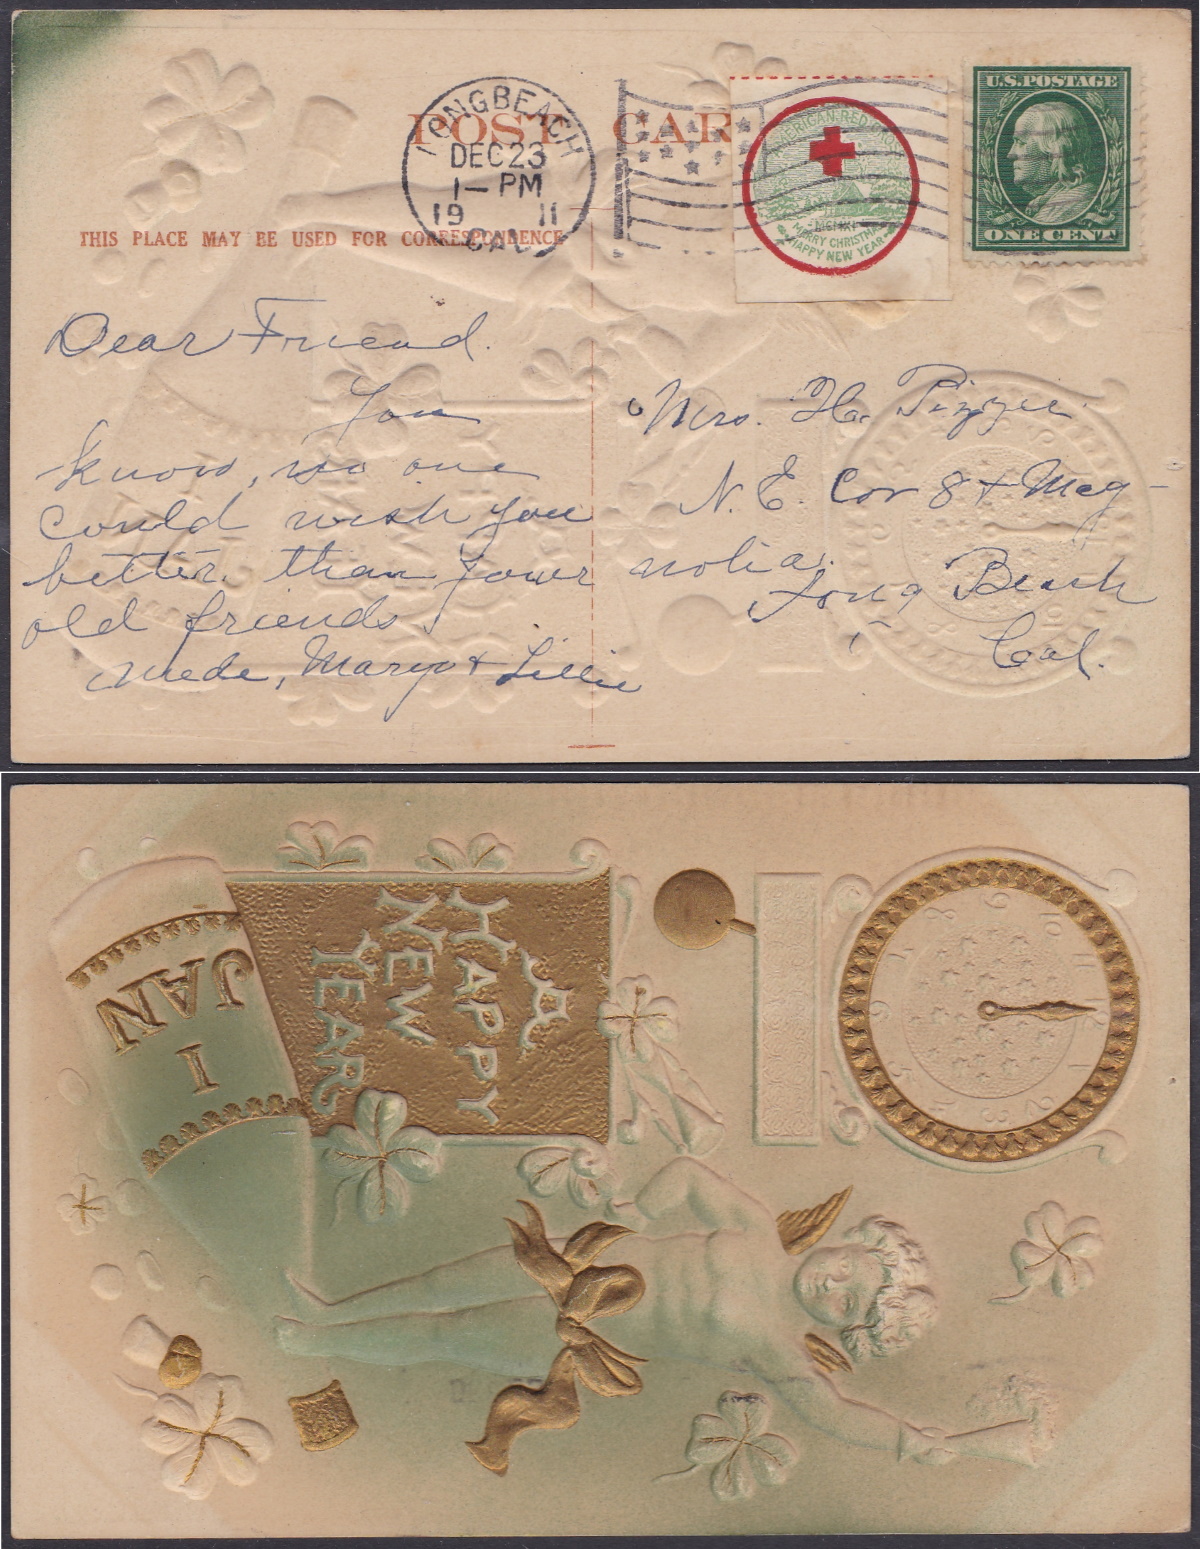 POST CARD
THIS PLACE MAY BE USED FOR CORRESPONDENCE
LONG BEACH
DEC 23
1 – PM
19 11
CAL.
AMERICAN RED CROSS
MERRY CHRISTMAS
HAPPY NEW YEAR
U.S. POSTAGE
ONE CENT
Dear Friend.
You
know, no one
could wish you
better than your
old friends
Mede, Mary + Lillie
Mrs. H. Pizzie
N.E. Cor 8 + Mag-
nolia.
Long Beach
Cal.
A
HAPPY
NEW
YEAR
JAN
1